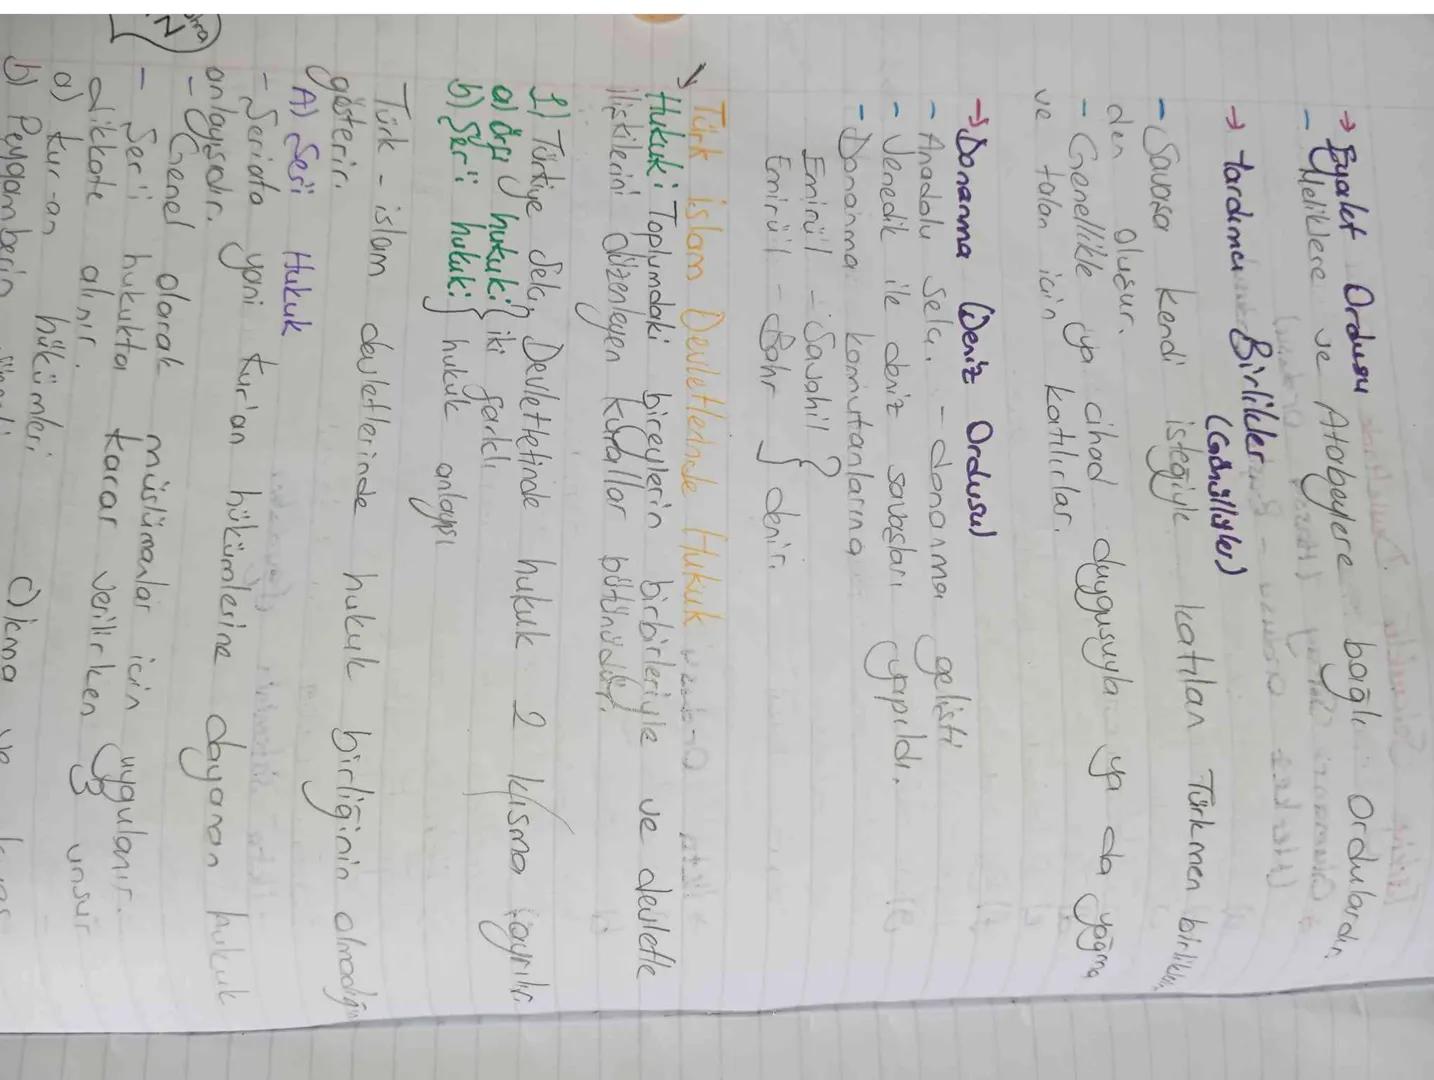 → Eyalet Ordusu
- Meliklere ve Atabeylere bağlı Ordulardır.
→ Yardımcı Birlikler
(Gönüllüler)
- Savaşa kendi isteğiyle katılan Türkmen birliklerin
den oluşur.
- Genellikle ya cihad duygusuyla ya da yağma
ve talan için katılırlar.
→ Donanma (Deniz Ordusu)
- Anadolu Selç. - donanma gelişti
- Venedik ile deniz savaşları yapıldı.
- Donanma komutanlarına
Emirü'l - Savahil
Emirü'l - Bahr } denir.
Türk İslam Devletlerinde Hukuk
Hukuk: Toplumdaki bireylerin birbirleriyle ve devletle
ilişkilerini düzenleyen kurallar bütünüdür.
1) Türkiye Selç. Devletinde hukuk 2 kısma ayrılır.
a) örfi hukuk: } iki farklı
b) Şer'i hukuk: } hukuk anlayışı
Türk - islam devletlerinde hukuk birliğinin olmadığını
gösterir.
A) Şer'i Hukuk
- Şeriata yani Kur'an hükümlerine dayanan hukuk
anlayışıdır.
- Genel olarak müslümanlar için uygulanır.
- Şer'i hukukta karar verilirken 3 unsur
dikkate alınır.
a) Kur-an hükümleri c) icma ve
b) Peygamberin